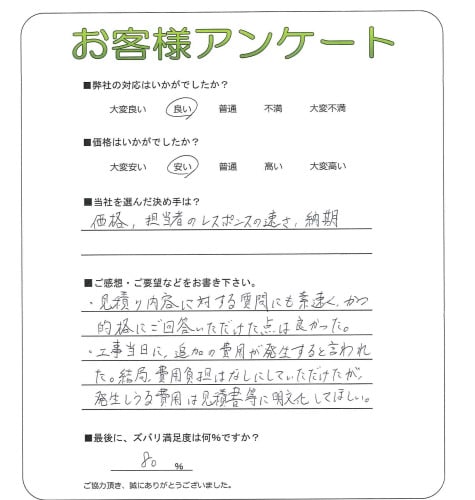 お客様アンケート
■弊社の対応はいかがでしたか？
大変良い 良い 普通 不満 大変不満
■価格はいかがでしたか？
大変安い 安い 普通 高い 大変高い
■当社を選んだ決め手は？
価格，担当者のレスポンスの速さ，納期
■ご感想・ご要望などをお書き下さい。
・見積り内容に対する質問にも素速く、かつ
的格にご回答いただけた点は良かった。
・工事当日に、追加の費用が発生すると言われ
た。結局、費用負担はなしにしていただけたが、
発生しうる費用は見積書等に明文化してほしい。
■最後に、ズバリ満足度は何%ですか？
80 %
ご協力頂き、誠にありがとうございました。